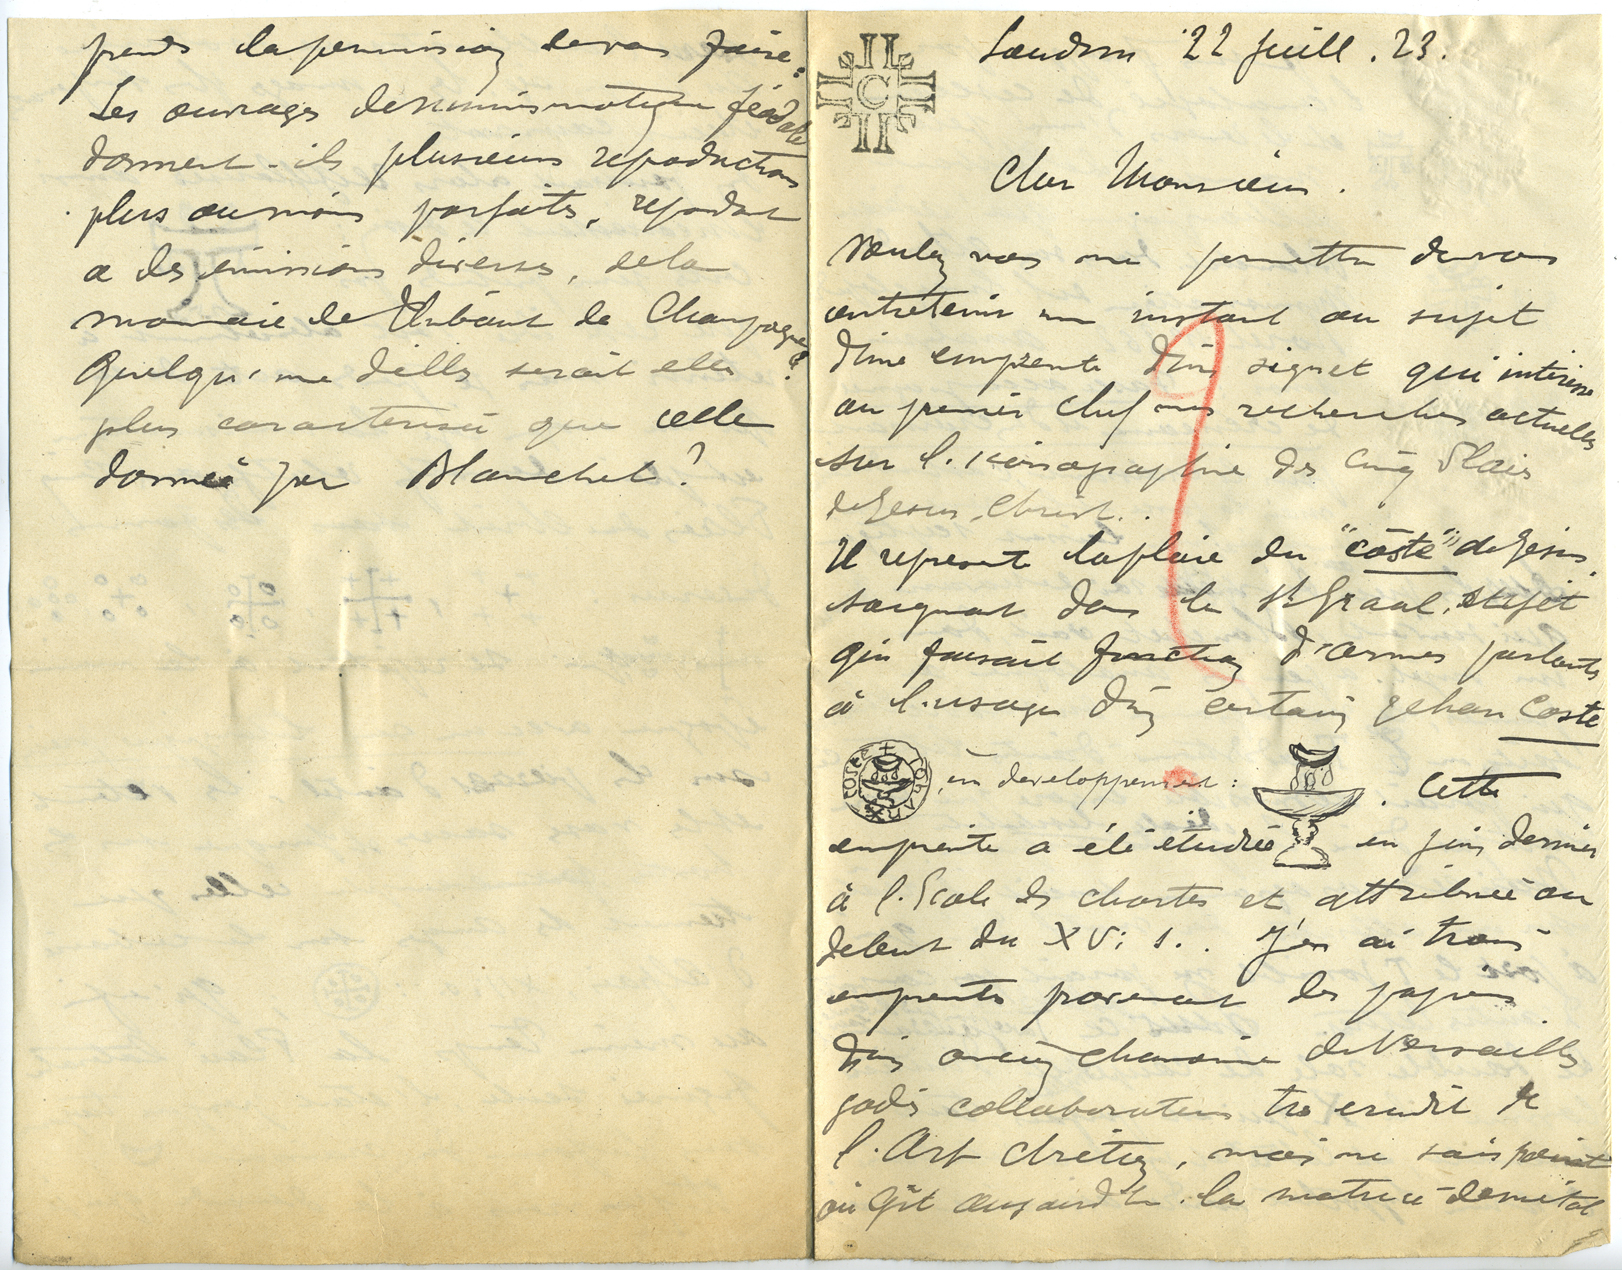 Loudun 22 Juill. 23.
Cher Monsieur.
Voulez vous me permettre de vous
entretenir un instant au sujet
d'une empreinte d'un signet qui intéresse
au premier chef mes recherches actuelles
sur l'iconographie des Cinq Plaies
de Jesus Christ..
Il represente la plaie du "coste" de Jesus
saignant dans le St Graal, sujet
qui faisait fonction d'armes parlantes
à l'usage d'un certain Jehan Coste
IOHAN COSTE
, en developpement : . Cette
empreinte a été étudiée en juin dernier
à l'Ecole des chartes et attribuée au
debut du XVI s.. J'en ai trois
empreintes provenant des papiers
d'un ancien chanoine de Versailles
jadis collaborateur très erudit de
l'Art chrétien, mais ne sais point
où gît aujourd'hui la matrice de métal
C
prends la permission de vous faire:
Les ouvrages de numismatique féodale
donnent-ils plusieurs reproductions
plus ou moins parfaites, repondant
a des émissions diverses, de la
monnaie de Thibaut de Champagne?
Quelqu'une d'elles serait elle
plus caractérisée que celle
donnée par Blanchet?